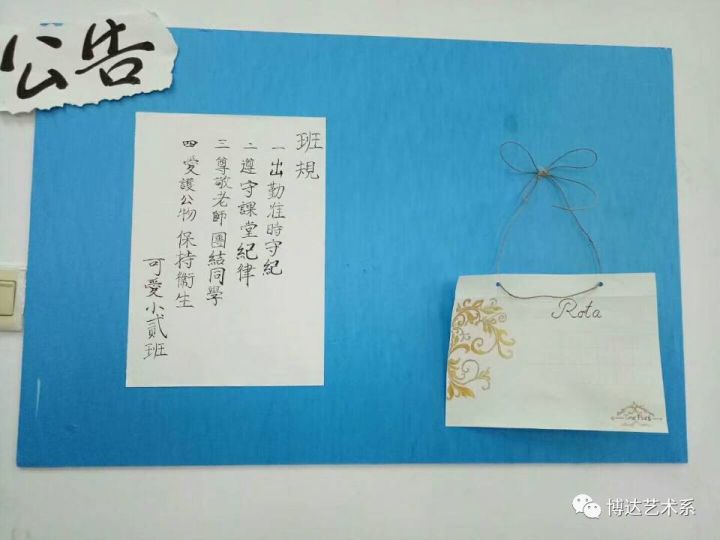 公告
班規
一 出勤准時守紀
二 遵守課堂紀律
三 尊敬老師團結同學
四 愛護公物保持衛生
可愛小貳班
Rota
博达艺术系